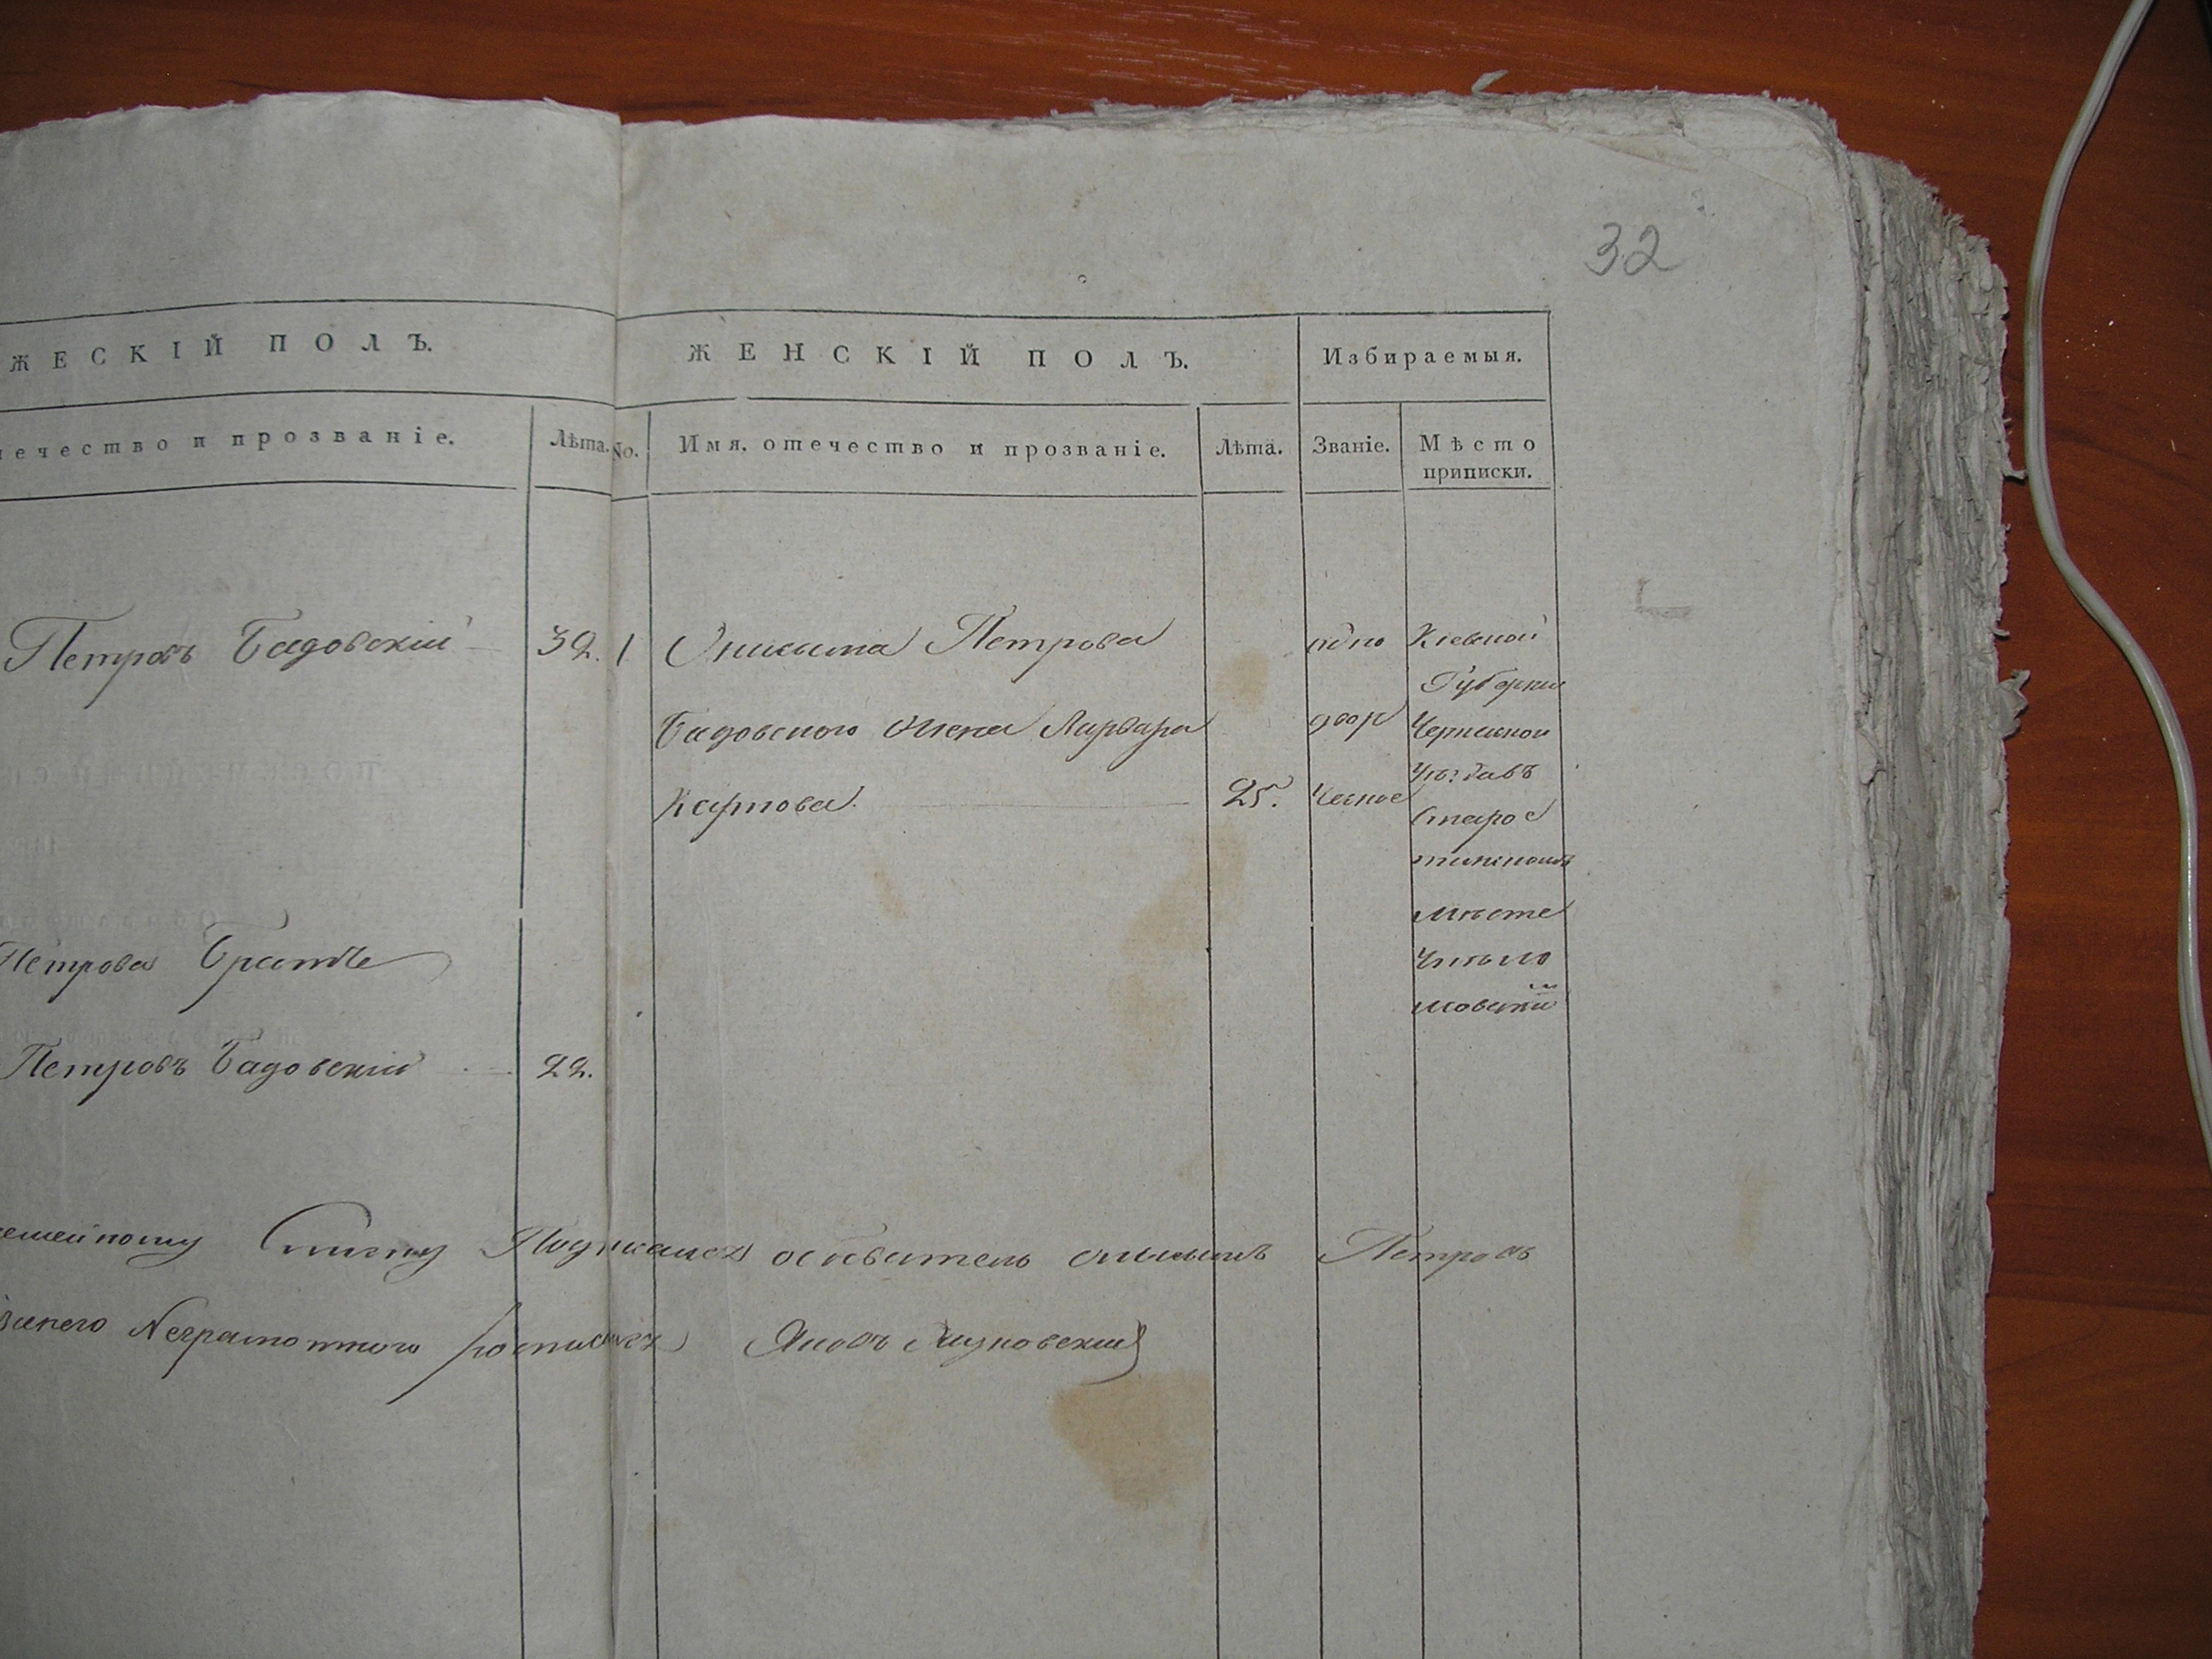 32
ЖЕСКІЙ ПОЛЪ.
ЖЕНСКІЙ ПОЛЪ.
Избираемыя.
течество и прозваніе.
Лѣта.
No.
Имя, отечество и прозваніе.
Лѣта.
Званіе.
Мѣсто
приписки.
Петровъ Бадовскій
32.
1
Онисима Петрова
Бадовского жена Варвара
Карпова.
25.
одно
двор
ческое
Киевской
Губернии
Старос
мѣсте
Петрова Братъе
Петровъ Бадовскій
22.
семейному Списку Подписался осадитель Онисимъ Петровъ
Неграмотного росписался Яковъ